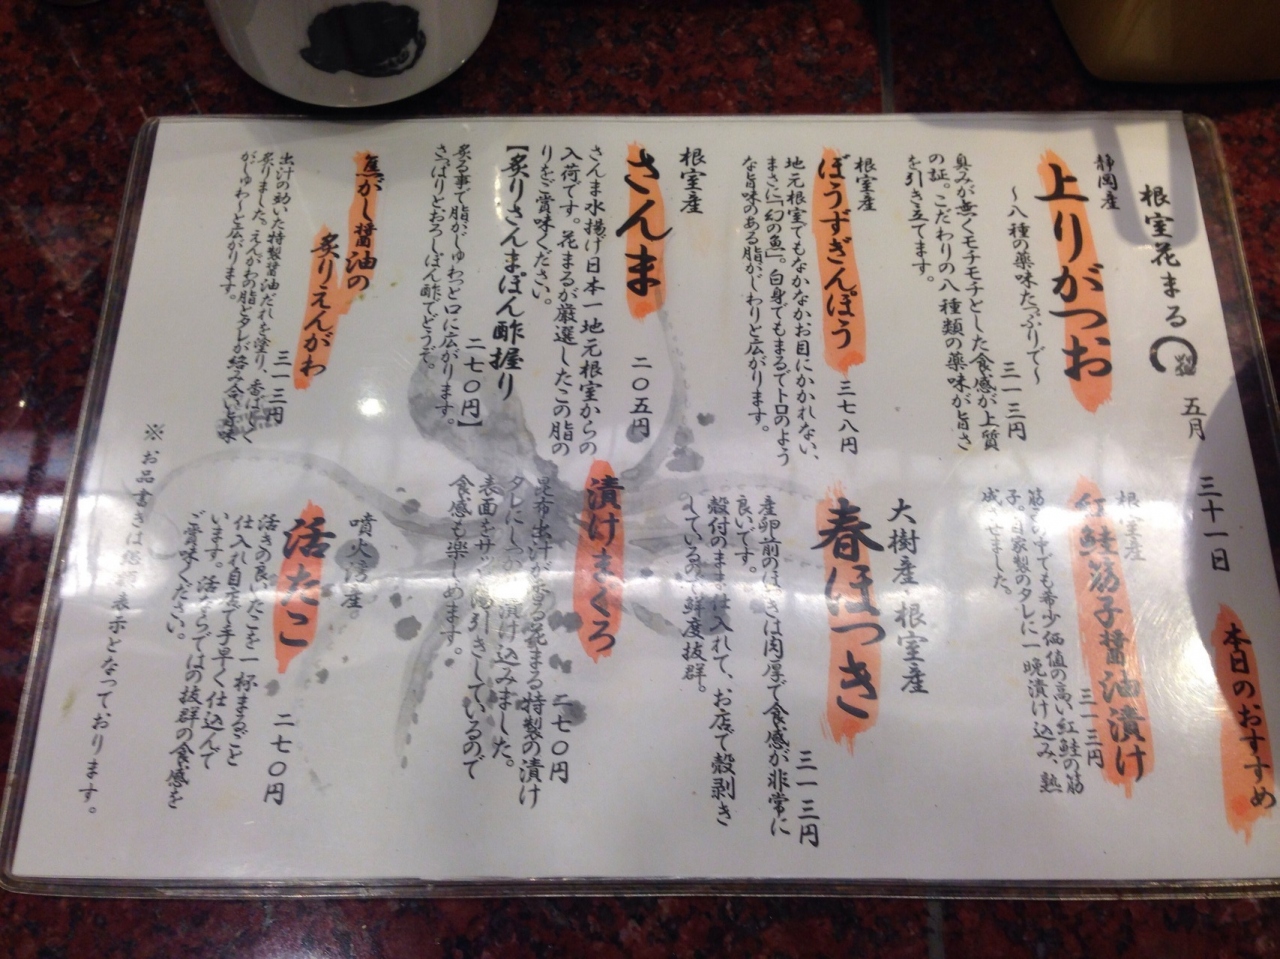 本日のおすすめ
根室花まる 五月 三十一日
静岡産
上りがつお
～八種の薬味たっぷりで～
三一三円
臭みが無くモチモチとした食感が上質
の証。こだわりの八種類の薬味が旨さ
を引き立てます。
根室産
ぼうずぎんぽう
三七八円
地元根室でもなかなかお目にかかれない、
まさに「幻の魚」。白身でもまるでトロのよう
な旨味のある脂がじわりと広がります。
根室産
さんま
二〇五円
さんま水揚げ日本一地元根室からの
入荷です。花まるが厳選したこの脂の
りをご賞味ください。
【炙りさんまぽん酢握り
二七〇円】
炙る事で脂がじゅわっと口に広がります。
さっぱりとおろしぽん酢でどうぞ。
焦がし醤油の
炙りえんがわ
三一三円
出汁の効いた特製醤油だれを塗り、香ばしく
炙りました。えんがわの脂とタレが絡み合い旨味
がじゅわーと広がります。
根室産
紅鮭筋子醤油漬け
三一三円
筋子の中でも希少価値の高い紅鮭の筋
子。自家製のタレに一晩漬け込み、熟
成させました。
大樹産・根室産
春ほっき
三一三円
産卵前のほっきは肉厚で食感が非常に
良いです。
殻付のまま仕入れて、お店で殻剥き
しているので鮮度抜群。
漬けまぐろ
二七〇円
昆布出汁が香る花まる特製の漬け
タレにしっかり漬け込みました。
表面をサッと湯引きしているので
食感も楽しめます。
噴火湾産
活たこ
二七〇円
活きの良いたこを一杯まるごと
仕入れ自店で手早く仕込んで
います。活ならではの抜群の食感を
ご賞味ください。
※お品書きは総額表示となっております。